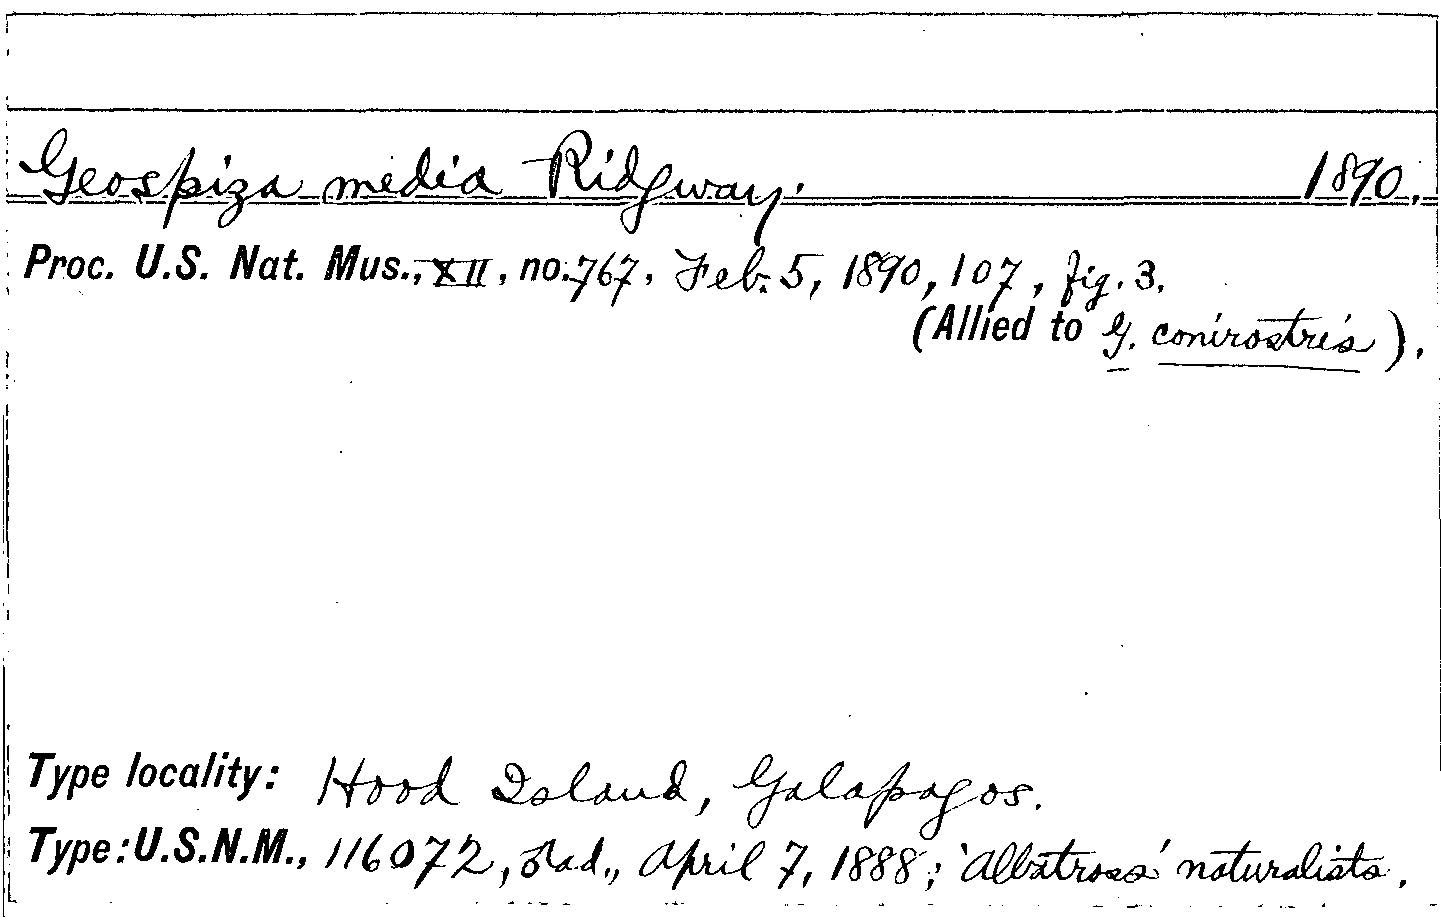 Geospiza media Ridgway. 1890.
Proc. U.S. Nat. Mus., XII, no. 767, Feb. 5, 1890, 107, fig. 3.
(Allied to G. conirostris).
Type locality: Hood Island, Galapagos.
Type: U.S.N.M., 116072, ♂ad., April 7, 1888; 'Albatross' naturalists.